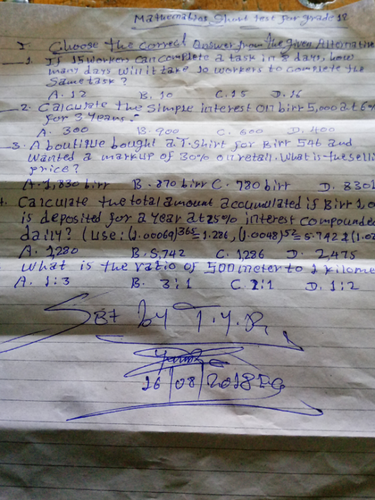 Mathematics Short test for grade 12
I Choose the correct answer from the given Alternative
1. If 15 workers can complete a task in 8 days, how
many days will it take 10 workers to complete the
Same task?
A. 12 B. 10 C. 15 D. 16
2. Calculate the simple interest on birr 5,000 at 6%
for 3 years?
A. 300 B. 900 C. 600 D. 400
3. A boutique bought a T-shirt for Birr 546 and
wanted a markup of 30% on retail. What is the selli
price?
A. 1,830 birr B. 870 birr C. 780 birr D. 8301
Calculate the total amount accumulated if Birr 1,0
is deposited for a year at 25% interest compounded
daily? (use: (1.00069)^365 = 1.286, (1.0048)^52 = 5.742 & (1.0
A. 1,230 B. 5,742 C. 1286 D. 2,475
what is the ratio of 500 meter to 1 kilome
A. 1:3 B. 3:1 C. 2:1 D. 1:2
SBT by T.Y.R
16/08/2018 EG